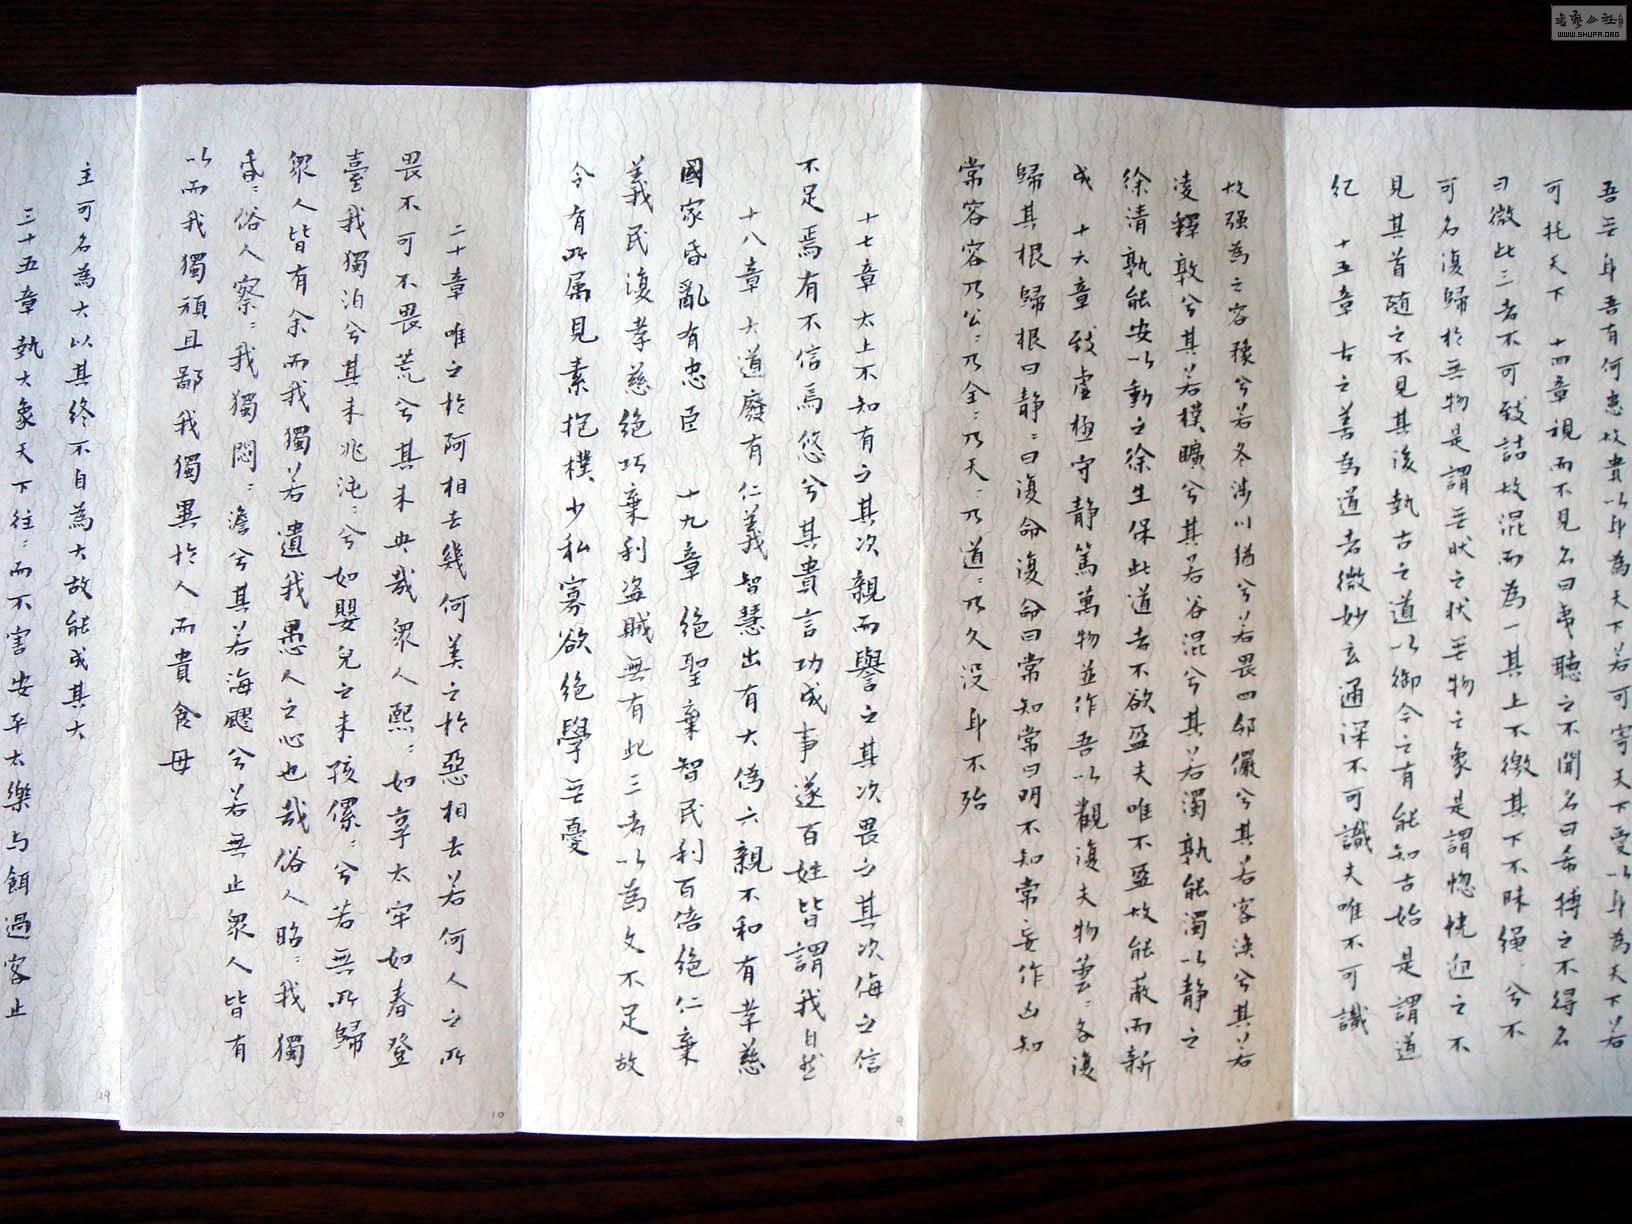 吾無身吾有何患故貴以身為天下若可寄天下受以身為天下若
可托天下　十四章視而不見名曰夷聽之不聞名曰希搏之不得名
曰微此三者不可致詰故混而為一其上不徼其下不昧繩:兮不
可名復歸於無物是謂無狀之狀無物之象是謂惚恍迎之不
見其首随之不見其後執古之道以御今之有能知古始是謂道
紀　十五章　古之善為道者微妙玄通深不可識夫唯不可識
故强為之容豫兮若冬涉川猶兮若畏四邻儼兮其若客渙兮其若
凌釋敦兮其若樸曠兮其若谷混兮其若濁孰能濁以静之
徐清孰能安以動之徐生保此道者不欲盈夫唯不盈故能蔽而新
成　十六章致虛極守静篤萬物並作吾以觀復夫物芸:各復
歸其根歸根曰静:曰復命復命曰常知常曰明不知常妄作凶知
常容容乃公:乃全:乃天:乃道:乃久没身不殆
十七章太上不知有之其次親而譽之其次畏之其次侮之信
不足焉有不信焉悠兮其貴言功成事遂百姓皆謂我自然
十八章大道廢有仁義智慧出有大偽六親不和有孝慈
國家昏亂有忠臣　十九章　絶聖棄智民利百倍絶仁棄
義民復孝慈絶巧棄利盗賊無有此三者以為文不足故
令有所属見素抱樸少私寡欲絶學無憂
二十章唯之於阿相去幾何美之於惡相去若何人之所
畏不可不畏荒兮其未央哉眾人熙:如享太牢如春登
臺我獨泊兮其未兆沌:兮如嬰兒之未孩儽:兮若無所歸
眾人皆有余而我獨若遺我愚人之心也哉俗人昭:我獨
昏:俗人察:我獨悶:澹兮其若海飂兮若無止眾人皆有
以而我獨頑且鄙我獨異於人而貴食母
主可名為大以其終不自為大故能成其大
三十五章執大象天下往:而不害安平太樂与餌過客止
10
9
19
WWW.SHUFA.ORG